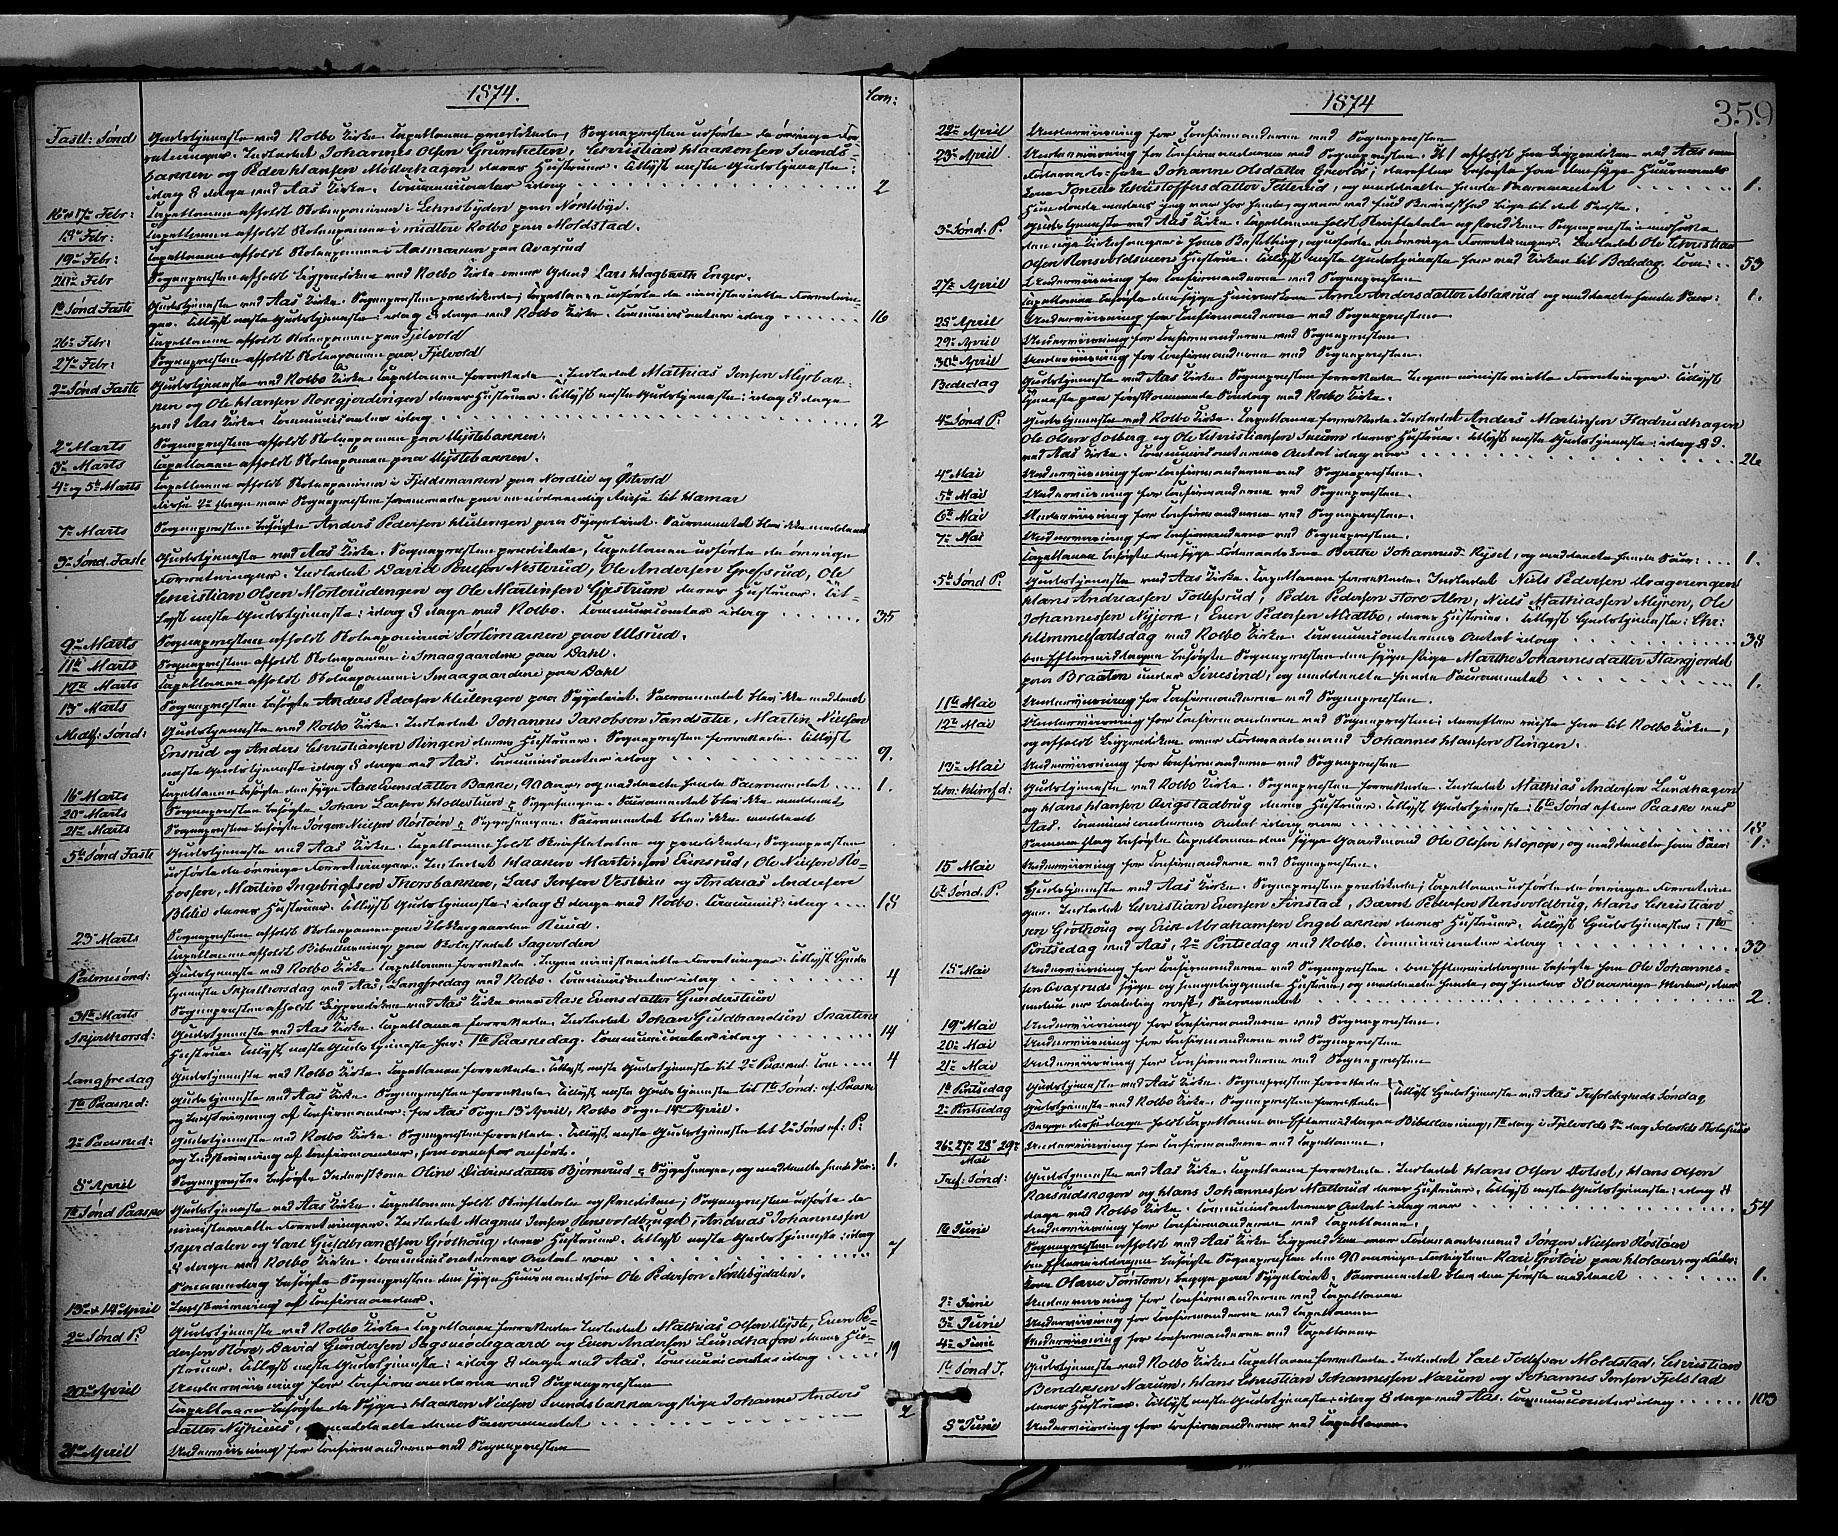 1874.
Com:
Fastl: Sønd Gudstjeneste ved Kolbo Kirke. Capellanen prædikede, Sognepresten udførte de øvrige For-
retninger. Indledet Johannes Olsen Grumheten, Christian Haakensen Svends-
bakken og Peder Hansen Möllerhagen deres Hustruer. Tillyst næste Gudstjeneste:
idag 8 dage ved Aas Kirke. Communicanter idag 2
16 & 17 Febr: Capellanen afholdt Skoleexamina i Lehnsbygden paa Nordlebye.
18 Febr: Capellanen afholdt Skoleexamen i midtre Kolbo paa Moldstad.
19 Febr: Capellanen afholdt Skoleexamen i Aasmarken paa Qvaxrud
20 Febr Sognepresten afholdt Ligprædiken ved Kolbo Kirke over Lars Hagbarth Enger.
1ste Sønd Faste Gudstjeneste ved Aas Kirke. Sognepresten prædikede; Capellanen udførte de ministerielle Forretnin-
ger. Tillyst næste Gudstjeneste: idag 8 dage ved Kolbo Kirke. Communicanter idag 16
26 Febr: Capellanen afholdt Skoleexamen paa Fjelvold
27 Febr: Sognepresten afholdt Skoleexamen paa Fjelvold
2 Sønd Faste Gudstjeneste ved Kolbo Kirke. Capellanen forrettede. Indledet Mathias Jensen Myrbak-
ken og Ole Hansen Rosegjerdingen deres Hustruer. Tillyst næste Gudstjeneste: idag 8 dage
ved Aas Kirke. Communicanter idag 2
2 Marts Sognepresten afholdt Skoleexamen paa Hystebakken.
3 Marts Capellanen afholdt Skoleexamen paa Hystebakken.
4 og 5te Marts Capellanen afholdt Skoleexamina i Fjeldsmarken paa Nordlie og Østvold
disse 2 dage var Sognepresten fraværende paa en nødvendig Reise til Hamar
7 Marts Sognepresten besøgte Anders Pedersen Hulengen paa Sygeleiet. Sacramentet blev ikke meddeelt
3 Sønd. Faste Gudstjeneste ved Aas Kirke. Sognepresten prædikede, Capellanen udførte de øvrige
Forretninger. Indledet David Nesterud, Ole Andersen Grefsrud, Ole
Christian Olsen Mosterudengen og Ole Martinsen Gjestrum deres Hustruer. Til-
lyst næste Gudstjeneste: idag 8 dage ved Kolbo. Communicanter idag 35
9 Marts Sognepresten afholdt Skoleexamen i Sørlimarken paa Ulsrud.
11te Marts Sognepresten afholdt Skoleexamen i Smaagaardene paa Dahl.
12te Marts Capellanen afholdt Skoleexamen i Smaagaardene paa Dahl
13 Marts Sognepresten besøgte Anders Pedersen Hulengen paa Sygeleiet. Sacramentet blev ikke meddeelt
Midtf: Sønd: Gudstjeneste ved Kolbo Kirke. Indledet Johannes Jakobsen Sandsæter, Martin Nielsen
Ensrud og Anders Christiansen Ringen deres Hustruer. Sognepresten forrettede. Tillyst
næste Gudstjeneste idag 8 dage ved Aas. Communicanter idag 9.
16 Marts Capellanen besøgte den syge Aase Evensdatter Banke, 90 Aar, og meddeelte hende Sacramentet 1.
20 Marts Sognepresten besøgte Johan Larsen paa Sygesengen. Sacramentet blev ikke meddeelt
21 Marts Sognepresten besøgte Jørgen Nielsen Røstøen paa Sygesengen. Sacramentet blev ikke meddeelt
5te Sønd Faste Gudstjeneste ved Aas Kirke. Capellanen holdt Skriftetalen og prædikede, Sognepresten
udførte de øvrige Forretninger. Indledet Haaken Martinsen Eensrud, Ole Nielsen Ro-
fossen, Martin Ingebrigtsen Thorsbakken, Lars Jensen Vestlien og Andreas Andersen
Blilie deres Hustruer. Tillyst Gudstjeneste: idag 8 dage ved Kolbo. Commun: idag 18
23 Marts Sognepresten afholdt Skoleexamen paa Ruud.
Capellanen afholdt Bibellæsning paa Skolestedet Sagvolden
Palmesønd: Gudstjeneste ved Kolbo Kirke. Capellanen forrettede. Ingen ministerielle Forretninger. Tillyst Guds-
tjeneste Skjærthorsdag ved Aas, Langfredag ved Kolbo. Communicanter idag 4
31te Marts Sognepresten afholdt Ligprædiken ved Aas Kirke over Aase Evensdatter Gunderstuen
Skjærthorsd: Gudstjeneste ved Aas Kirke. Capellanen forrettede. Indledet Johan Guldbrandsen Skartlies
Hustrue. Tillyst næste Gudstjeneste her: 1ste Paaskedag. Communicanter idag 14
Langfredag Gudstjeneste ved Kolbo Kirke. Capellanen forrettede. Tillyst næste Gudstjeneste til 2 Paasked. Com. 4
1ste Paasked: Gudstjeneste ved Aas Kirke. Sognepresten forrettede. Tillyst næste Gudstjeneste til 1ste Sønd: ef. Paaske
og Indskrivning af Confirmander: for Aas Sogn 13 April, Kolbo Sogn 14 April.
2 Paasked: Gudstjeneste ved Kolbo Kirke. Sognepresten forrettede. Tillyst næste Gudstjeneste til 2 Sønd ef. P:
og Indskrivning af Confirmander, som ovenfor anført.
8 April Sognepresten besøgte Inderstkone Oline Didriksdatter Bjørnerud paa Sygesengen, og meddeelte hende Sac: 1.
1ste Sønd Paaske Gudstjeneste ved Aas Kirke. Capellanen holdt Skriftetale og Prædiken; Sognepresten udførte de
ministerielle Forretninger. Indledet Magnus Jensen Rensvoldbruget, Andreas Johannessen
Skjerdalen og Carl Guldbrandsen Grøthoug deres Hustruer. Tillyst næste Gudstjeneste: idag
8 dage ved Kolbo Kirke. Communicanternes Antal var 7
Samme dag besøgte Sognepresten den syge Huusmandssøn Ole Pedersen Nordlebydalen.
13 & 14 April Indskrivning af Confirmander.
2 Sønd P: Gudstjeneste ved Kolbo Kirke. Capellanen forrettede. Indledet Mathias Olsen Hyste, Even Pe-
dersen Rooe, David Gundersen Sagsmødegaard og Even Andersen Lundhagen deres Hu-
struer. Tillyst næste Gudstjeneste: idag 8 dage ved Aas. Communicantes idag 19
20 April Underviisning for Confirmanderne ved Sognepresten
Capellanen besøgte de Syge: Haaken Nielsen Svendsbakken og Pige Johanne Anders
datter Nyhuus, og meddeelte dem Sacramentet 2
21 April Underviisning for Confirmanderne ved Sognepresten
1874
359
22 April Underviisning for Confirmanderne ved Sognepresten
23 April Underviisning for Confirmanderne ved Sognepresten. Kl 1 afholdt han Ligprædiken ved Aas over
Føderaadskone Johanne Olsdatter Greeola; derefter besøgte han den syge Huusmands
kone Tonette Christoffersdatter Fellerud, og meddeelte hende Sacramentet 1.
Hun døde medens jeg var hos hende, og var ved fuld Bevidsthed lige til det Sidste.
3 Sønd. P. Gudstjeneste ved Aas Kirke. Capellanen holdt Skriftetale og Prædiken. Sognepresten indsatte
den nye Kirkesanger i hans Bestilling, og udførte de øvrige Forretninger. Indledet Ole Christian
Olsen Rensvoldsveens Hustrue. Tillyst næste Gudstjeneste her ved Kirken til Bededag. Com: 53
27 April Underviisning for Confirmanderne ved Sognepresten
Capellanen besøgte den syge Huusmkone Anne Andersdatter Aslakrud og meddeelte hende Sacr: 1.
28 April Underviisning for Confirmanderne ved Sognepresten
29 April Underviisning for Confirmanderne ved Sognepresten.
30te April Underviisning for Confirmanderne ved Sognepresten.
Bededag Gudstjeneste ved Aas Kirke. Sognepresten forrettede. Ingen ministerielle Forretninger. Tillyst
Tjeneste paa førstkommende Søndag ved Kolbo Kirke.
4 Sønd P: Gudstjeneste ved Kolbo Kirke. Capellanen forrettede. Indledet Anders Martinsen Hadrudhagen
Ole Olsen Solberg og Ole Christiansen Sveum deres Hustruer. Tillyst næste Gudstjeneste: idag 8 D.
ved Aas Kirke. Communicanternes Antal idag var 26
4 Mai Underviisning for Confirmanderne ved Sognepresten.
5te Mai Underviisning for Confirmanderne ved Sognepresten.
6te Mai Underviisning for Confirmanderne ved Sognepresten.
7 Mai Underviisning for Confirmanderne ved Sognepresten.
Capellanen besøgte den syge Føderaadskone Berthe Johannesd. Kyset, og meddeelte hende Sacr: 1.
5te Sønd P: Gudstjeneste ved Aas Kirke. Capellanen forrettede. Indledet Niels Pedersen Kragerengen
Hans Andreassen Tollefsrud, Peder Pedersen Store Alm, Niels Mathiassen Myren, Ole
Johannessen Nyjorn, Even Pedersen Midtbo, deres Hustruer. Tillyst Gudstjeneste: Chr:
Himmelfartsdag ved Kolbo Kirke. Communicanternes Antal idag 38
Om Eftermiddagen besøgte Sognepresten den syge Pige Marthe Johannesdatter Stangjordet
paa Braaten under Sivesind, og meddeelte hende Sacramentet 1.
11te Mai Underviisning for Confirmanderne ved Sognepresten.
12te Mai Underviisning for Confirmanderne ved Sognepresten; derefter reiste han til Kolbo Kirke,
og afholdt Ligprædiken over Føderaadsmand Johannes Hansen Ringen.
13 Mai Underviisning for Confirmanderne ved Sognepresten
Chr: Himfd: Gudstjeneste ved Kolbo Kirke. Sognepresten forrettede. Indledet Mathias Andersen Lundhagen
og Hans Hansen Qvigstadbrug deres Hustruer. Tillyst Gudstjeneste: 6te Sønd efter Paaske ved
Aas. Communicanternes Antal idag var 18
Samme dag besøgte Capellanen den syge Gaardmand Ole Olsen Kopop, og meddeelte ham Sacr: 1.
15 Mai Underviisning for Confirmanderne ved Sognepresten.
6te Sønd. P. Gudstjeneste ved Aas Kirke. Sognepresten prædikede; Capellanen udførte de øvrige Forretnin-
ger. Indledet Christian Evensen Finstad, Bernt Pedersen Rensvoldbrug, Hans Christian-
sen Grøthoug og Even Abrahamsen Engebakken deres Hustruer. Tillyst Gudstjenester: 1ste
Pintsedag ved Aas, 2 Pintsedag ved Kolbo. Communicanter idag 33
18 Mai Underviisning for Confirmanderne ved Sognepresten. Om Eftermiddagen besøgte han Ole Johannes-
sen Qvaxruds syge og sengeliggende Hustrue, og meddeelte hende, og hendes 80 aarige Moder, der
endnu er taalelig rask, Sacramentet 2.
19 Mai Underviisning for Confirmanderne ved Sognepresten.
20 Mai Underviisning for Confirmanderne ved Sognepresten
21 Mai Underviisning for Confirmanderne ved Sognepresten
1te Pintsedag Gudstjeneste ved Aas Kirke. Sognepresten forrettede
2 Pintsedag Gudstjeneste ved Kolbo Kirke. Sognepresten forrettede
Tillyst Gudstjeneste ved Aas Trefoldigheds Søndag
Begge disse dage holdt Capellanen om Eftermiddagen Bibellæsning, 1ste dag i Fjelvolds 2 dag Skolehuus
26 27 28 29 Mai Underviisning for Confirmanderne ved Capellanen.
Tref: Sønd: Gudstjeneste ved Aas Kirke. Capellanen forrettede. Indledet Hans Olsen Dolset, Hans Olsen
Rausrudskogen og Hans Johannessen Mattisrud deres Hustruer. Tillyst næste Gudstjeneste: idag 8
dage ved Kolbo Kirke. Communicanternes Antal idag var 54
1te Junie Underviisning for Confirmanderne ved Capellanen.
Sognepresten afholdt ved Aas Kirke Ligprædiken over Føderaadsmand Jørgen Nielsen Røstøen
Om Eftermiddagen besøgte Sognepresten den 90 aarige Kari Grøtøie paa og
kone Olave Tømten, begge paa Sygeleiet. Sacramentet blev den første meddeelt 1.
2 Junie Underviisning for Confirmanderne ved Capellanen
3 Junie Underviisning for Confirmanderne ved Capellanen
4 Junie Underviisning for Confirmanderne ved Capellanen
1te Sønd T. Gudstjeneste ved Kolbo Kirke. Capellanen forrettede. Indledet Carl Tollefsen Moldstad, Christian
Bendiksen Narum, Hans Christian Johannessen Narum og Johannes Jensen Fjelstad
deres Hustruer. Tillyst næste Gudstjeneste: idag 8 dage ved Aas. Communicanter idag 103
8 Junie Underviisning for Confirmanderne ved Capellanen.